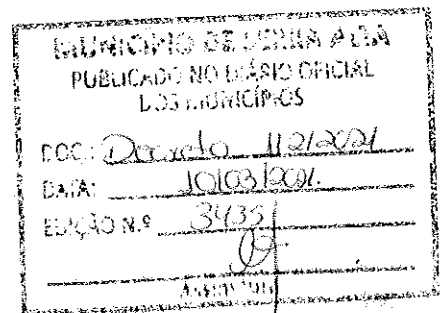 MUNICÍPIO DE SERRA ALTA
PUBLICADO NO DIÁRIO OFICIAL
DOS MUNICÍPIOS
DOC.: Decreto 112/2021
DATA: 10/03/2021.
EDIÇÃO N.º 3435
Assinatura